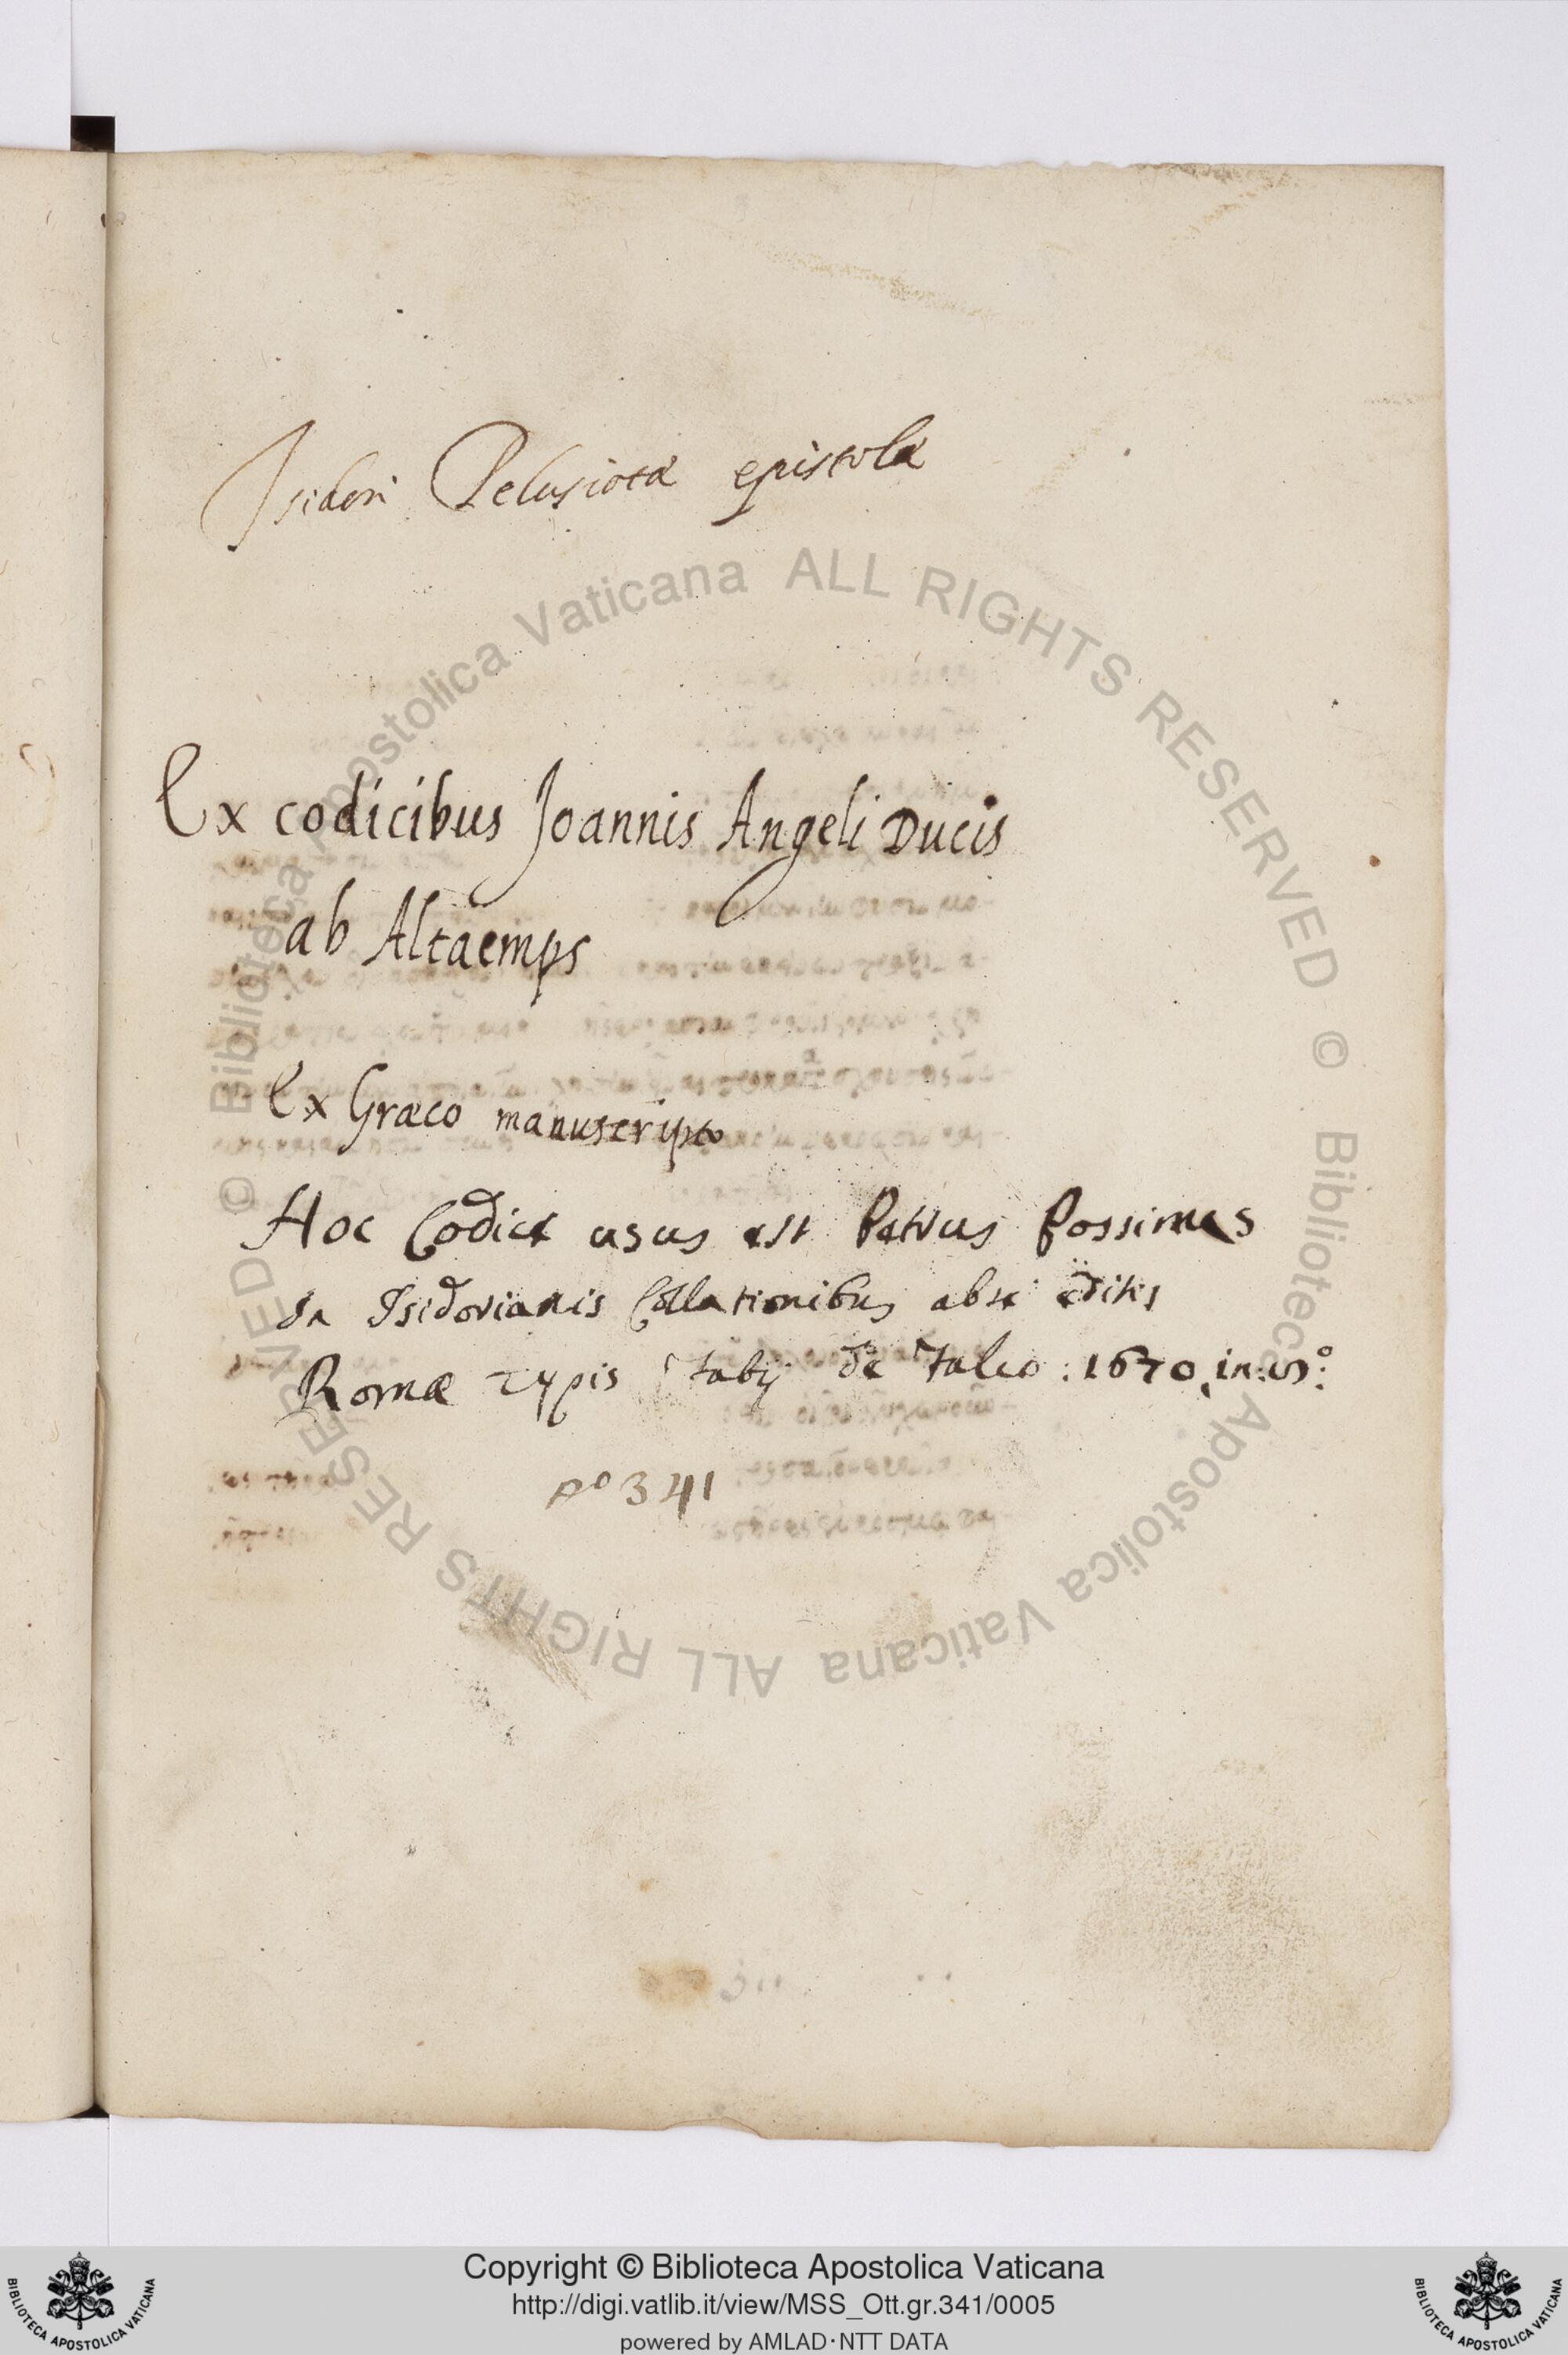 Isidori Pelusiotæ epistolæ
Ex codicibus Joannis Angeli Ducis
ab Altaemps
Ex Græco manuscripto
Hoc Codice usus est Petrus Possimus
in Isidorianis Collationibus abse editis
Romæ Typis fabij de falco : 1670. in
Aº 341
© Biblioteca Apostolica Vaticana ALL RIGHTS RESERVED © Biblioteca Apostolica Vaticana ALL RIGHTS RESERVED
Copyright © Biblioteca Apostolica Vaticana
http://digi.vatlib.it/view/MSS_Ott.gr.341/0005
powered by AMLAD·NTT DATA
BIBLIOTECA APOSTOLICA VATICANA
BIBLIOTECA APOSTOLICA VATICANA